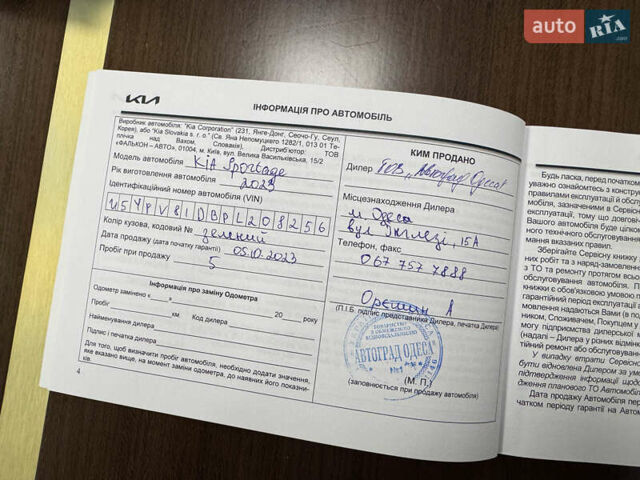 auto RIA .com
KIA
ІНФОРМАЦІЯ ПРО АВТОМОБІЛЬ
Виробник автомобіля: "Kia Corporation" (231, Янге-Донг, Сеочо-Гу, Сеул,
Корея), або "Kia Slovakia s. r. o." (Св. Яна Непомуцкего 1282/1, 013 01 Те-
плічка над Вахом, Словакія), Дистриб'ютор: ТОВ
«ФАЛЬКОН – АВТО», 01004, м. Київ, вул. Велика Васильківська, 15/2
Модель автомобіля KIA Sportage
Рік виготовлення автомобіля 2023
Ідентифікаційний номер автомобіля (VIN)
U5YPV81DBPL208256
Колір кузова, кодовий № зелений
Дата продажу (дата початку гарантії) 05.10.2023
Пробіг при продажу 5
Інформація про заміну Одометра
Одометр замінено « » 20 року
Пробіг км Код дилера
Найменування дилера
Підпис і печатка дилера
Для того, щоб визначити пробіг автомобіля, необхідно додати значення,
яке вказано вище, на момент заміни одометр, до наявних його показни-
ків.
4
КИМ ПРОДАНО
Дилер ТОВ „Автоград Одеса"
Місцезнаходження Дилера
м. Одеса
вул 15А
Телефон, факс
067 757 7888
А
(П.І.Б. підпис представника Дилера, печатка Дилера)
ТОВАРИСТВО
З ОБМЕЖЕНОЮ
ВІДПОВІДАЛЬНІСТЮ
АВТОГРАД ОДЕСА
№1
(М. П.)
(заповнюється при продажу автомобіля)
Будь ласка, перед початком
уважно ознайомтесь з конструк
правилами експлуатації й обслуг
мобіля, зазначеними в Сервісн
експлуатації, тому що довгові
Вашого автомобіля буде цілком
ного технічного обслуговування
мання вказаних правил.
Зберігайте Сервісну книжку
них робіт та з наряд-замовлен
з ТО та ремонту протягом всьо
обслуговування автомобіля. П
книжки є обов'язковою умовою
гарантійний період експлуатації
мовлення надаються Вами (в по
ником, Споживачем, Покупцем у
міру підприємства дилерської м
(надалі – Дилера) у разі відмін
тійний ремонт або обслуговування
У випадку втрати Сервісно
бути відновлена Дилером за умо
підтвердження інформації щодо
дження планового ТО Автомобіля
Дата продажу Автомобіля пер
чатком періоду гарантії на Авто